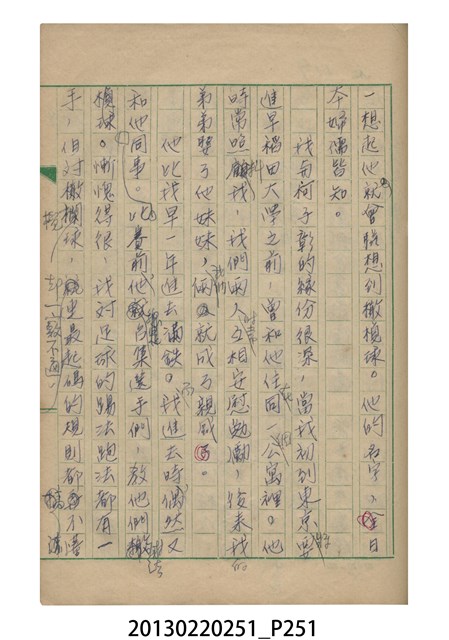 一想起他就會聯想到橄欖球。他的名字、全日
本婦孺皆知。
我與柯子彰的緣份很深，當我初到東京要
進早稻田大學之前，曾和他住在同一個公寓裡。他
時常照顧我，我們兩人互相安慰勉勵，後來我的
弟弟娶了他妹妹，倆就成了親戚。
他比我早一年進去滿鐵。我進去時偶然又
和他同事。比賽前他召集選手們，教他們
橄球。慚愧得很，我對足球的踢法跑法都有一
手，但對橄欖球，就連最起碼的規則都不懂
20130220251_P251